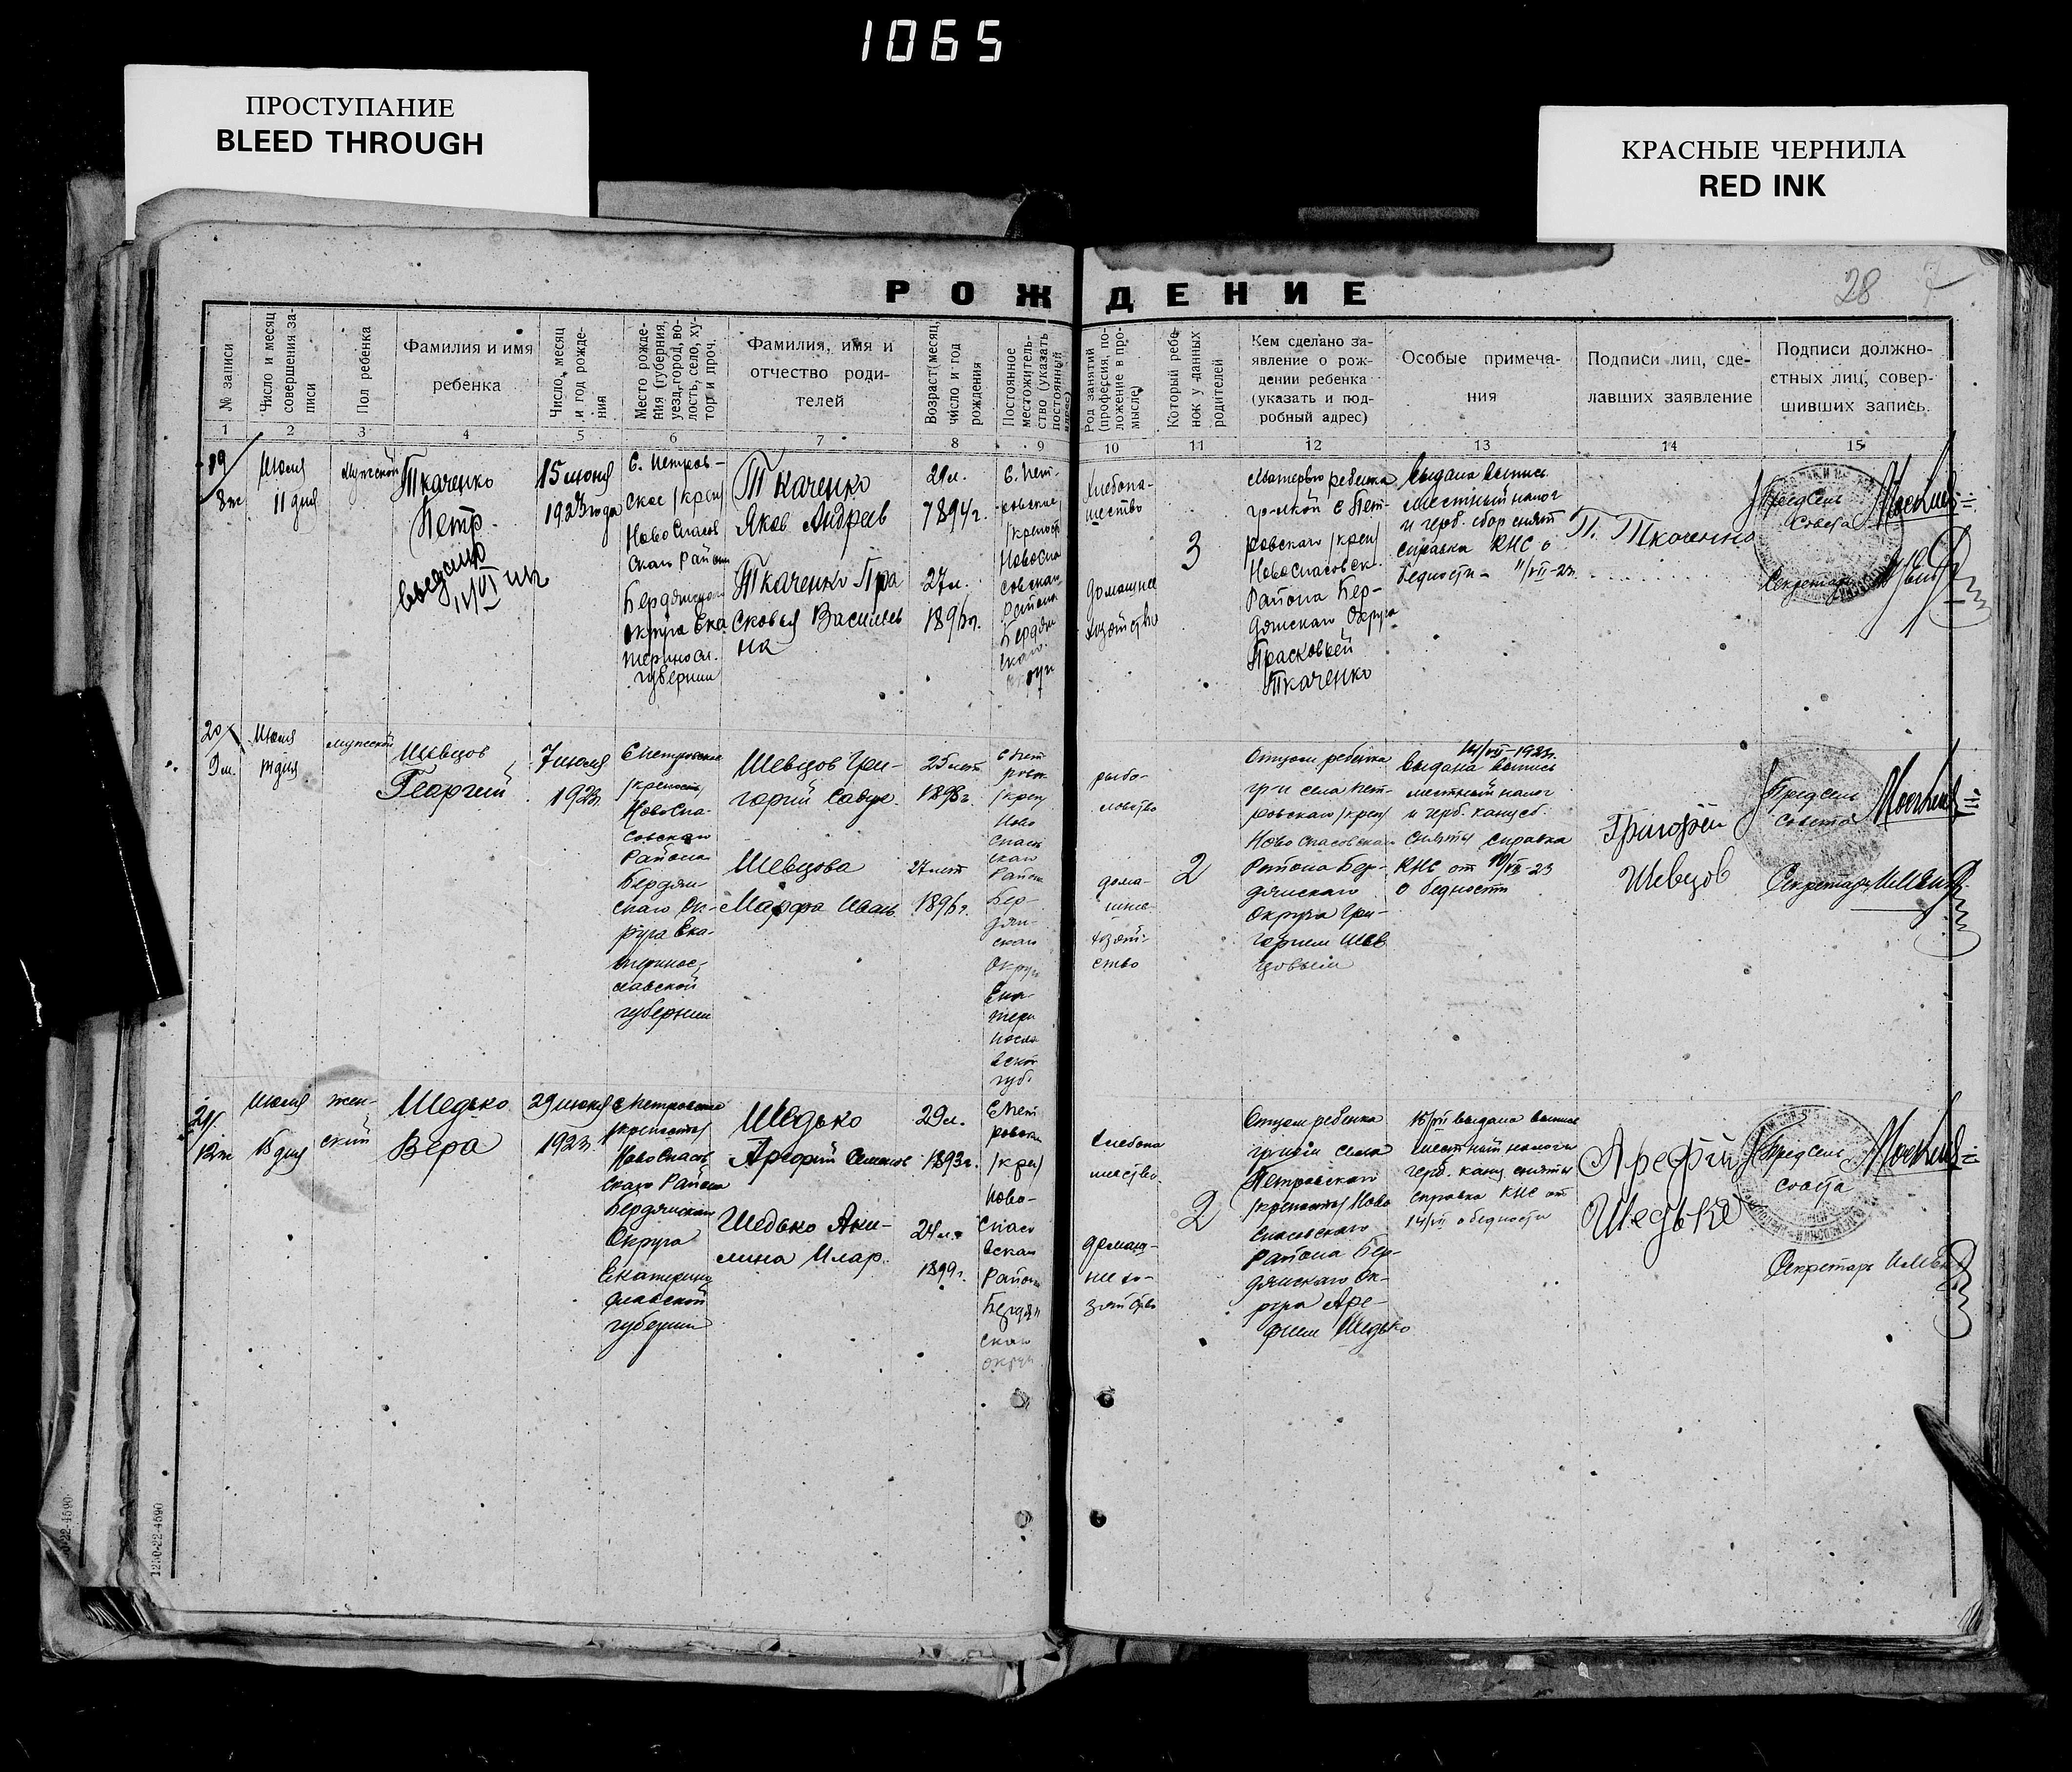 1065
ПРОСТУПАНИЕ
BLEED THROUGH
КРАСНЫЕ ЧЕРНИЛА
RED INK
РОЖДЕНИЕ
28 7
№ записи
Число и месяц
совершения за-
писи
Пол ребенка
Фамилия и имя
ребенка
Число, месяц
и год рожде-
ния
Место рожде-
ния (губерния,
уезд, город, во-
лость, село, ху-
тор и проч.
Фамилия, имя и
отчество роди-
телей
Возраст (месяц,
число и год
рождения
Постоянное
местожитель-
ство (указать
постоянный
адрес)
Род занятий
(профессия, по-
ложение в про-
мысле)
Который ребе-
нок у данных
родителей
Кем сделано за-
явление о рож-
дении ребенка
(указать и под-
робный адрес)
Особые примеча-
ния
Подписи лиц, сде-
лавших заявление
Подписи должно-
стных лиц, совер-
шивших запись.
1 2 3 4 5 6 7 8 9 10 11 12 13 14 15
19/
8м
Июля
11 дня
Мужской
Ткаченко
Петр
выдано
15 июня
1923 года
С. Петров-
ское /креп/
Ново Спасов
скаго Района
Бердянскаго
округа Ека
теринос.
губернии
Ткаченко
Яков Андреев
Ткаченко Пра
сковья Василев
на
29 л.
1894 г.
27 л.
1896 г.
С. Пет-
ровское
/крепост
Ново Спа
совскаго
района
Бердян
скаго
округ
Хлебопа-
шество
Домашнее
хозяйство
3
Матерью ребенка
гр-нкой с Пет-
ровскаго /креп/
Новоспасовск.
Района Бер-
дянскаго Округа
Прасковьей
Ткаченко
Выдана выпись
местный налог
и герб. сбор снят
справка КНС о
бедности 11/VII-23
П. Ткаченко
Предсель
Совета
Секретарь
20/
9м.
Июля
дня
мужской
Шевцов
Георгий
7 июля
1923г.
С Петровское
/крепость/
Ново Спа-
совскаго
Района
Бердян-
скаго Ок-
руга Ека-
теринос-
лавской
губернии
Шевцов Гри-
горий Савук.
Шевцова
Марфа Иван.
25 лет
1898 г.
27 лет
1896 г.
С Пет
ровск
/креп/
Ново
Спасов
скаго
Района
Бер-
дян-
скаго
Округа
Ека-
тери
носла
вской
губ.
рыбо-
ловство
дома-
шнее
хозяй-
ство
2
Отцом ребенка
гр-н села Пет-
ровскаго /креп/
Ново Спасовскаго
Района Бер-
дянскаго
Округа Гри-
горием Шев
цовым
14/VII-1923г.
выдана выпись
местный налог
и герб. канц сб.
сняты справка
КНС от 10/VII-23
о бедности
Григорий
Шевцов
Предсель
совета
Секретарь
21/
12м
Июля
15 дня
жен-
ский
Шедько
Вера
29 июня
1923г.
С Петровское
/крепость/
Ново Спасов
скаго Района
Бердянскаго
Округа
Екатерино
славской
губернии
Шедько
Арефий Семенов
Шедько Аки-
лина Илар.
29 л.
1893 г.
24 л.
1899 г.
С Пет
ровское
/креп/
Ново-
Спасо
вскаго
Района
Бердян
скаго
округа
Хлебопа
шество.
домаш-
нее хо-
зяйство
2
Отцом ребенка
гр-ном села
Петровскаго
/крепость/ Ново
Спасовскаго
Района Бер-
дянскаго Ок-
руга Аре-
фием Шедько
15/VII выдана выпись
местный налог и
герб. канц сняты
справка КНС от
14/VII о бедности
Арефий
Шедько
Предсель
совета
Секретарь
1250-22-4590